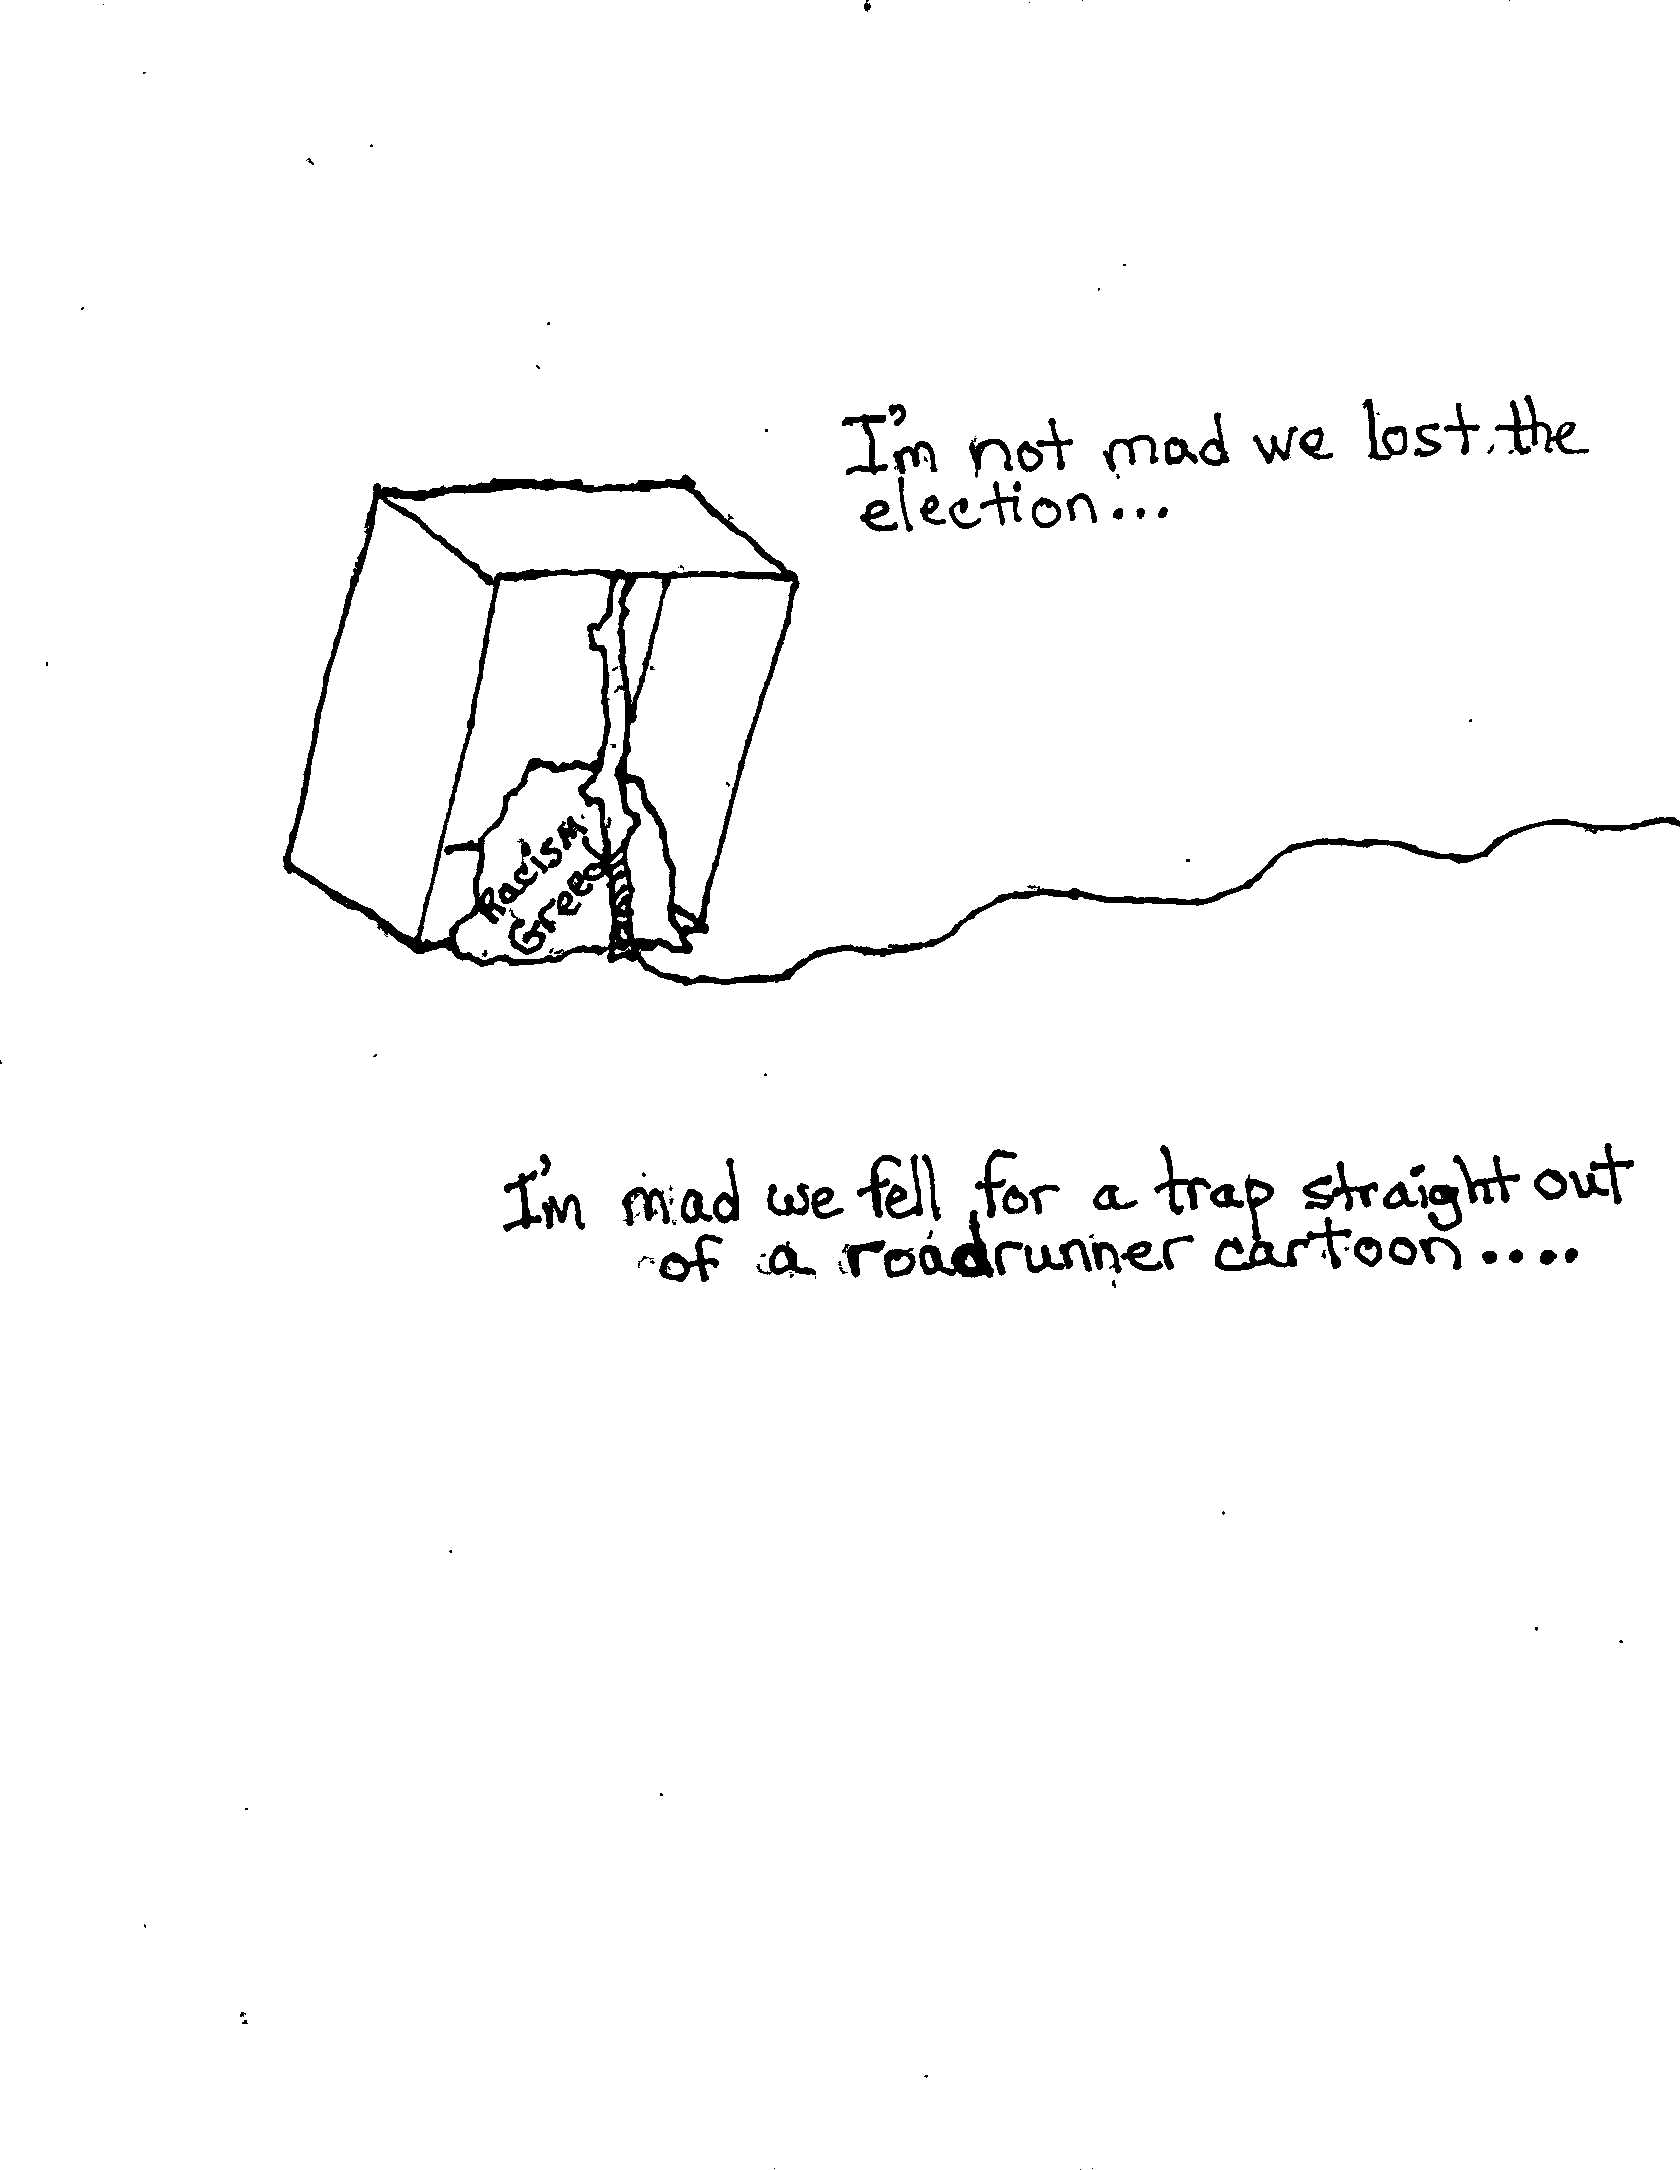 I'm not mad we lost the
election...
Racism
Greed
I'm mad we fell for a trap straight out
of a roadrunner cartoon....